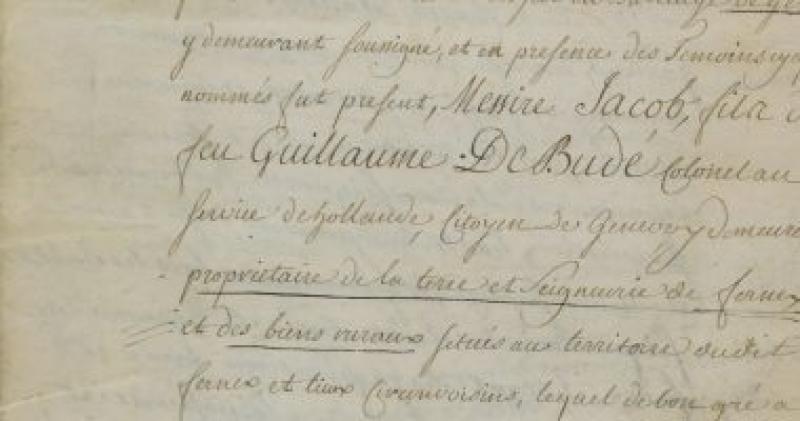 y demeurant soussigné, et en presence des Temoins cy
nommés fut present, Messire Jacob, fils
feu Guillaume De Budé Colonel au
service de hollande, Citoyen de Geneve y demeur
proprietaire de la terre et Seigneurie de fernex
et des biens ruraux situés au territoire dudit
fernex et lieux circonvoisins, lequel de bon gré a